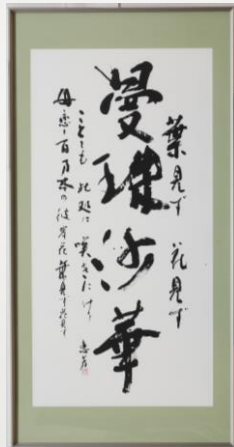 葉見ず 花見ず
曼珠沙華
ことしも 此処に 咲きたけり
母恋し百万本の彼岸花葉見ず花見ず